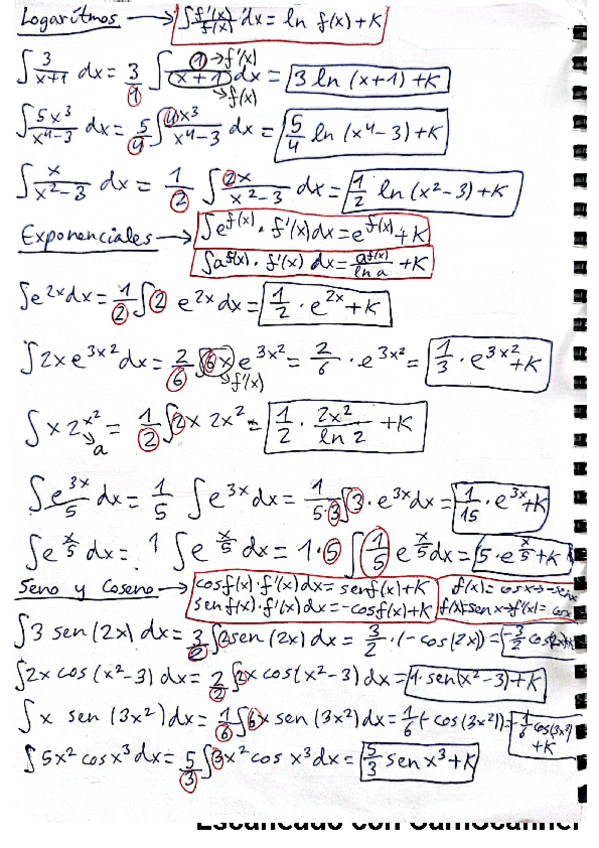 Logarítmos → ∫ f'(x)/f(x) dx = ln f(x) + K
∫ 3/(x+1) dx = 3/1 ∫ 1/(x+1) dx = 3 ln (x+1) + K
→ f'(x)
→ f(x)
∫ 5x³/(x⁴-3) dx = 5/4 ∫ 4x³/(x⁴-3) dx = 5/4 ln (x⁴-3) + K
∫ x/(x²-3) dx = 1/2 ∫ 2x/(x²-3) dx = 1/2 ln (x²-3) + K
Exponenciales → ∫ e^f(x) · f'(x) dx = e^f(x) + K
∫ a^f(x) · f'(x) dx = a^f(x)/ln a + K
∫ e^2x dx = 1/2 ∫ 2 e^2x dx = 1/2 · e^2x + K
∫ 2x e^3x² dx = 2/6 ∫ 6x e^3x² = 2/6 · e^3x² = 1/3 · e^3x² + K
→ f'(x)
∫ x 2^x² = 1/2 ∫ 2x 2x² = 1/2 · 2x²/ln 2 + K
→ a
∫ e^3x/5 dx = 1/5 ∫ e^3x dx = 1/5·3 ∫ 3 · e^3x dx = 1/15 · e^3x + K
∫ e^x/5 dx = 1 ∫ e^x/5 dx = 1·5 ∫ 1/5 e^x/5 dx = 5 · e^x/5 + K
Seno y Coseno → cos f(x) · f'(x) dx = sen f(x) + K f(x) = cos x → -sen x
sen f(x) · f'(x) dx = -cos f(x) + K f(x) = sen x → f'(x) = cos x
∫ 3 sen (2x) dx = 3/2 ∫ 2 sen (2x) dx = 3/2 · (-cos (2x)) = -3/2 cos (2x) + K
∫ 2x cos (x²-3) dx = 2/2 ∫ 2x cos (x²-3) dx = 1 · sen (x²-3) + K
∫ x sen (3x²) dx = 1/6 ∫ 6x sen (3x²) dx = 1/6 (-cos (3x²)) = -1/6 cos (3x²) + K
∫ 5x² cos x³ dx = 5/3 ∫ 3x² cos x³ dx = 5/3 sen x³ + K
Escaneado con CamScanner